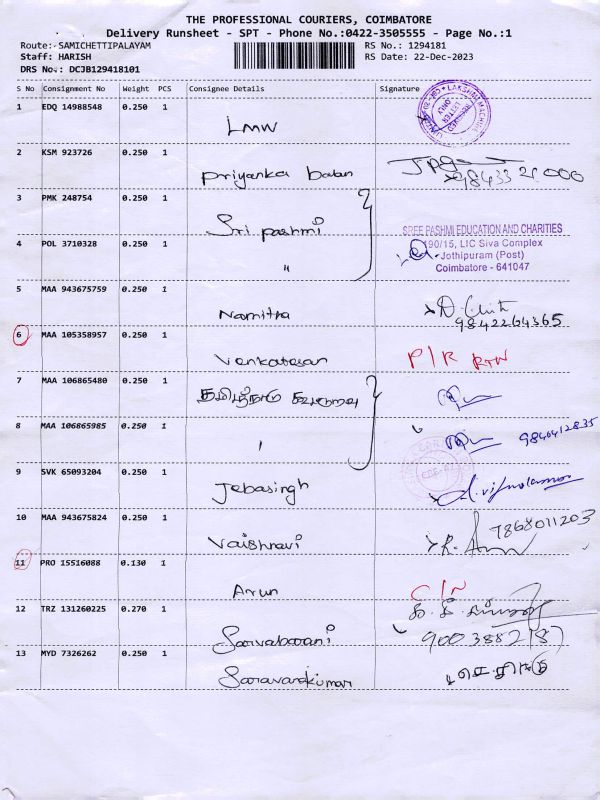 THE PROFESSIONAL COURIERS, COIMBATORE
Delivery Runsheet - SPT - Phone No.:0422-3505555 - Page No.:1
Route: SAMICHETTIPALAYAM
RS No.: 1294181
Staff: HARISH
RS Date: 22-Dec-2023
DRS No.: DCJB129418101
S No Consignment No Weight PCS Consignee Details Signature
1 EDQ 14988548 0.250 1 LMW
2 KSM 923726 0.250 1 Priyanka balan
98433 21000
3 PMK 248754 0.250 1 Sri pashmi
SREE PASHMI EDUCATION AND CHARITIES
190/15, LIC Siva Complex
4 POL 3710328 0.250 1 "
Jothipuram (Post)
Coimbatore - 641047
5 MAA 943675759 0.250 1 Namitra
9842264365
6 MAA 105358957 0.250 1 Venkatesan P/R RTN
7 MAA 106865480 0.250 1 தமிழ்நாடு
8 MAA 106865985 0.250 1 "
9840412835
9 SVK 65093204 0.250 1 Jebasingh
10 MAA 943675824 0.250 1 Vaishnavi
7868011203
11 PRO 15516088 0.130 1 Arun C/N
12 TRZ 131260225 0.270 1 Sarvabavani
13 MYD 7326262 0.250 1 Saravanakumar